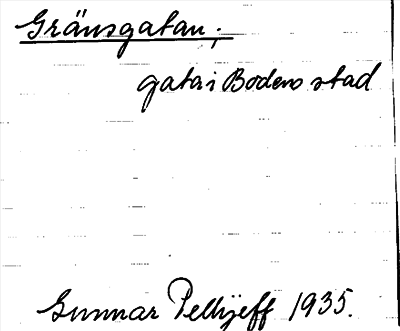 Gränsgatan,
gata i Bodens stad
Gunnar Pellijeff 1935.